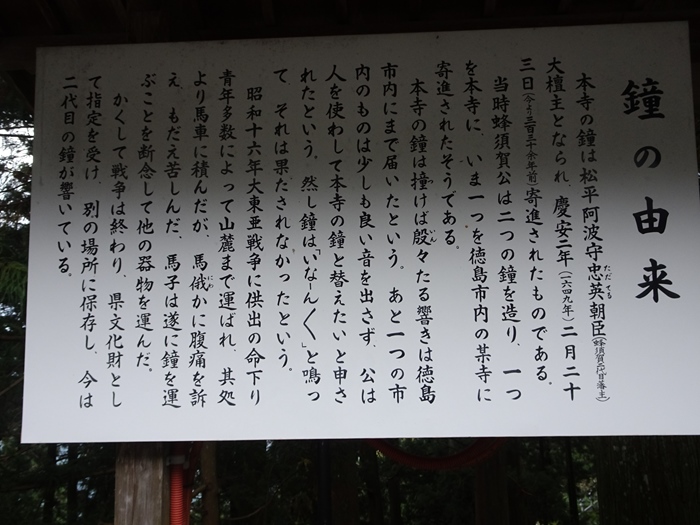 鐘の由来
本寺の鐘は松平阿波守忠英朝臣(蜂須賀二代目藩主)
ただてる
大檀主となられ、慶安二年(一六四九年)二月二十
三日(今より三百三十余年前)寄進されたものである。
当時蜂須賀公は二つの鐘を造り、一つ
を本寺に、いま一つを徳島市内の某寺に
寄進されたそうである。
本寺の鐘は撞けば殷々たる響きは徳島
いん
市内にまで届いたという。あと一つの市
内のものは少しも良い音を出さず、公は
人を使わして本寺の鐘と替えたいと申さ
れたという、然し鐘は「いなーん〱」と鳴っ
て、それは果だされなかったという。
昭和十六年大東亜戦争に供出の命下り
青年多数によって山麓まで運ばれ、其処
より馬車に積んだが、馬俄かに腹痛を訴
にわ
え、もだえ苦しんだ、馬子は遂に鐘を運
ぶことを断念して他の器物を運んだ。
かくして戦争は終わり、県文化財とし
て指定を受け、別の場所に保存し、今は
二代目の鐘が響いている。